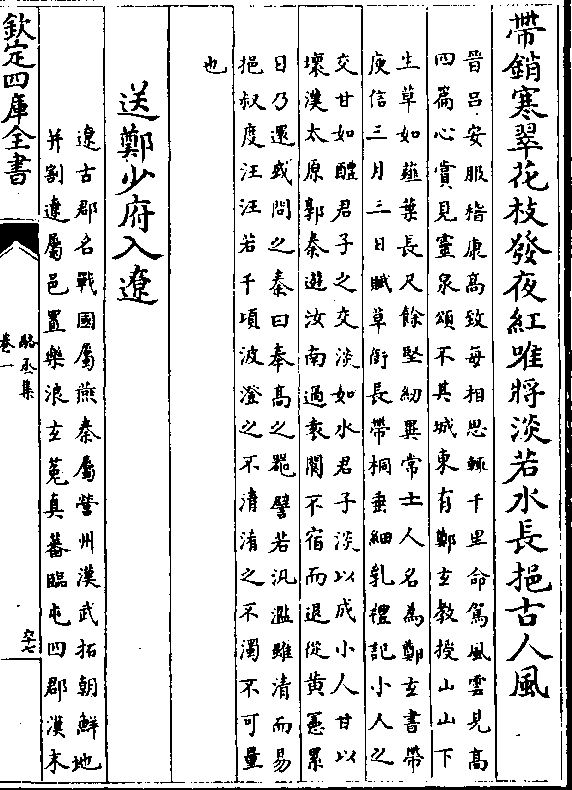 帶銷寒翠花枝發夜紅唯將淡若水長挹古人風
晉呂安服嵇康高致每相思輒千里命駕風雲見高
四篇心賞見靈泉頌不其城東有鄭玄教授山山下
生草如薤葉長尺餘堅紉異常士人名為鄭玄書帶
庾信三月三日賦草銜長帶桐垂細乳禮記小人之
交甘如醴君子之交淡如水君子淡以成小人甘以
壞漢太原郭泰遊汝南過袁閬不宿而退從黃憲累
日乃還或問之泰曰奉高之器譬若汎濫雖清而易
挹叔度汪汪若千頃波澄之不清淆之不濁不可量
也
送鄭少府入遼
遼古郡名戰國屬燕秦屬營州漢武拓朝鮮地
并割遼屬邑置樂浪玄菟真蕃臨屯四郡漢末
欽定四庫全書
駱丞集
卷一